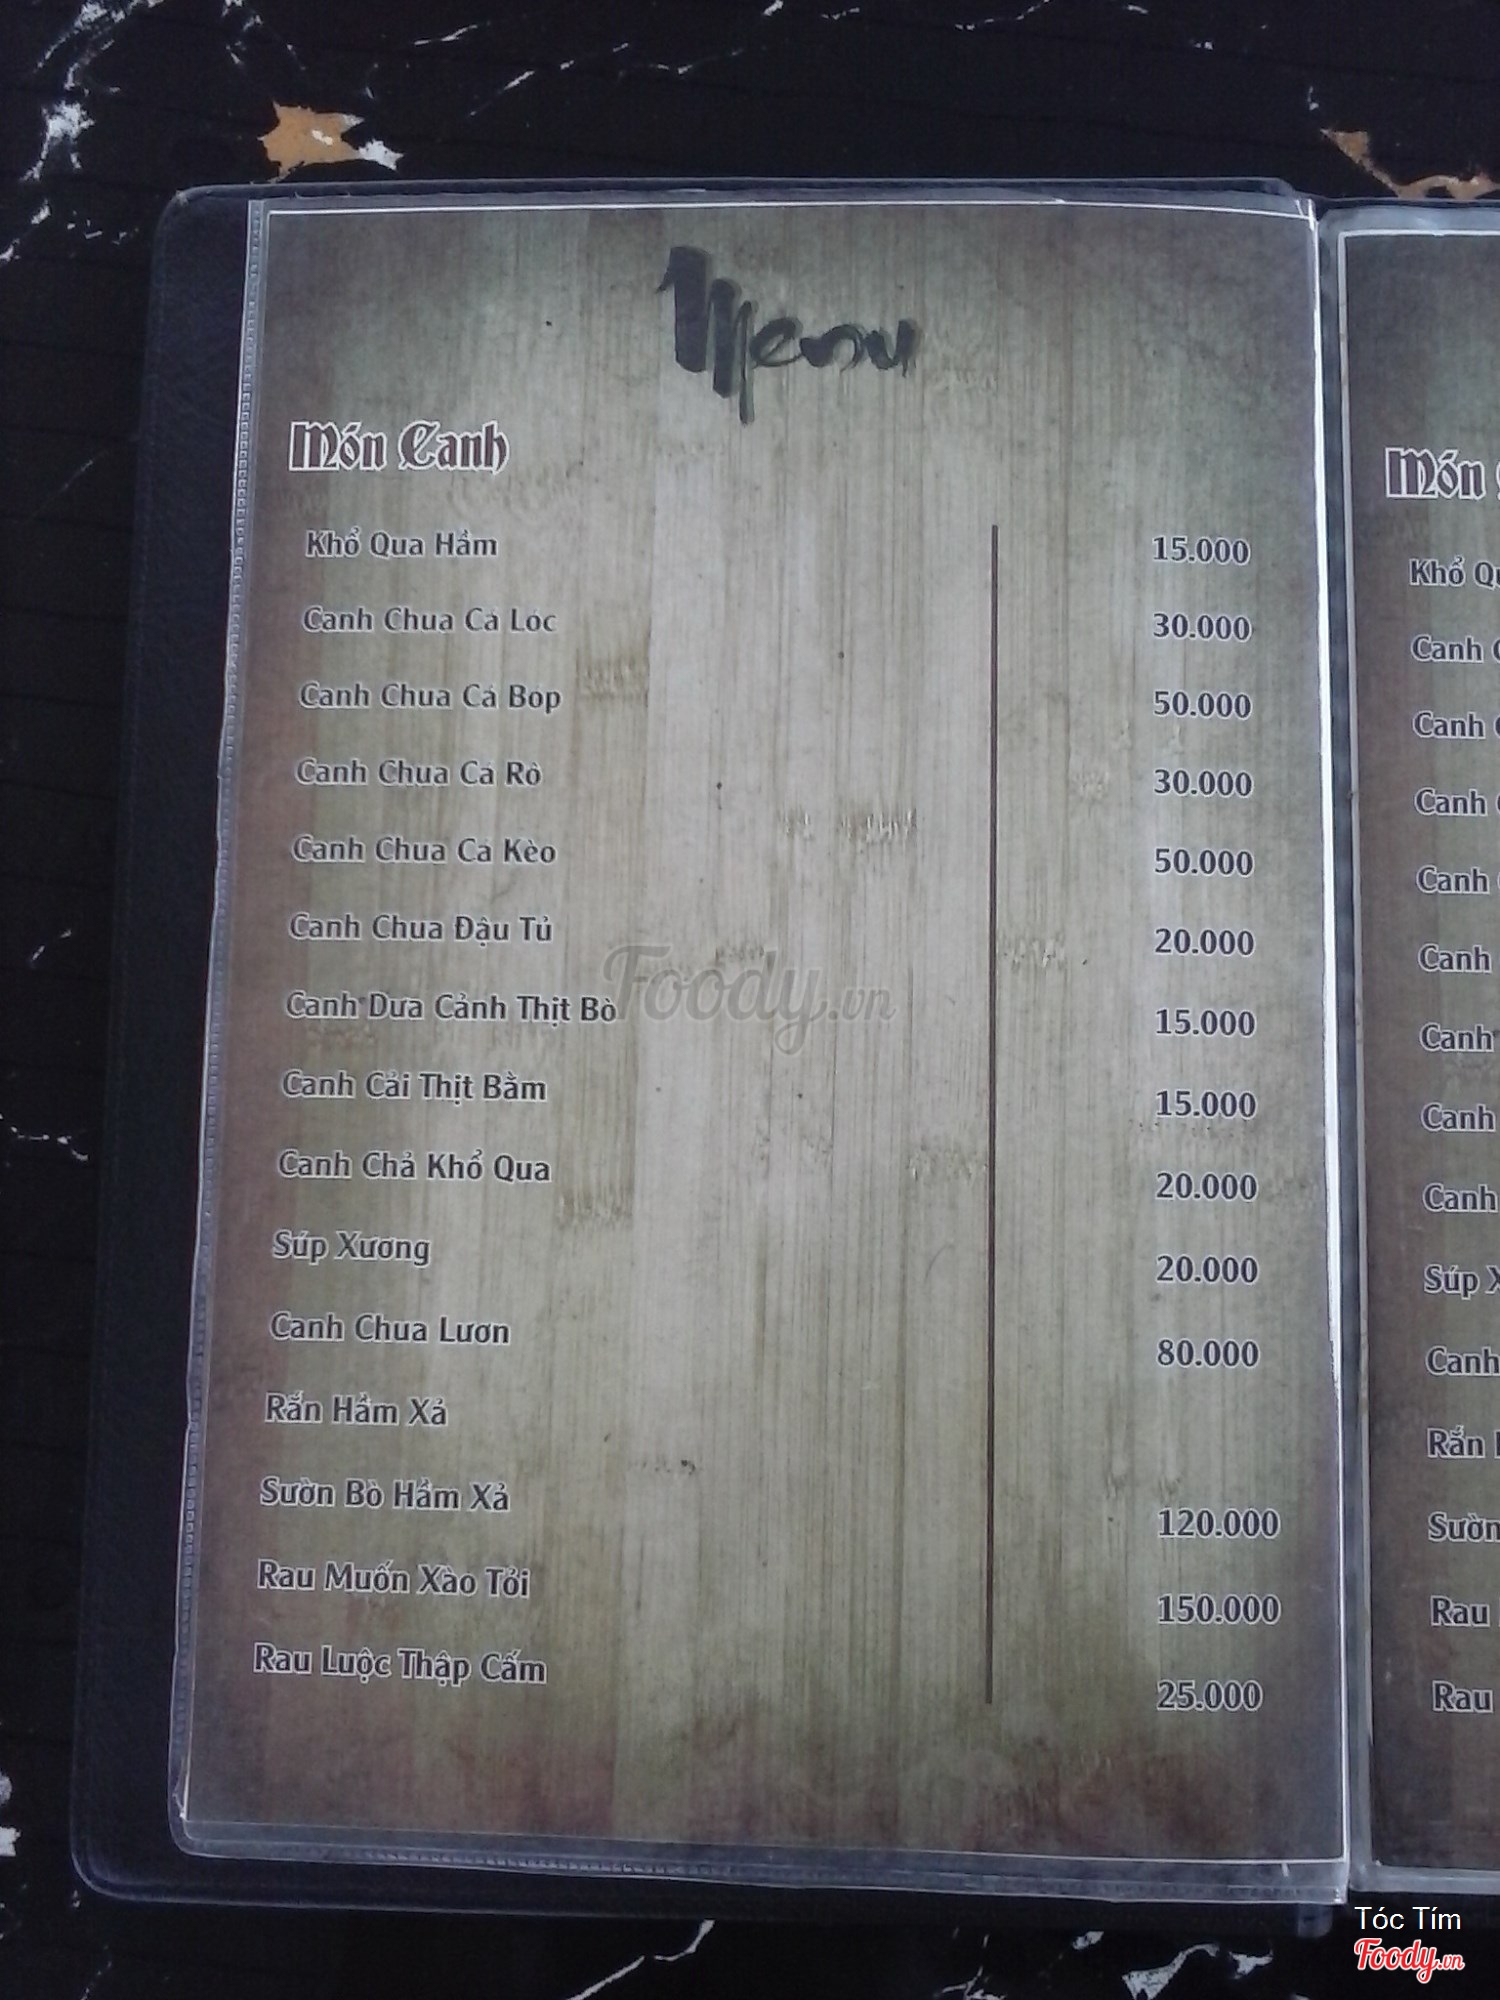 Menu
Món Canh
Khổ Qua Hầm 15.000
Canh Chua Cá Lóc 30.000
Canh Chua Cá Bop 50.000
Canh Chua Cá Rô 30.000
Canh Chua Cá Kèo 50.000
Canh Chua Đậu Tủ 20.000
Canh Dưa Cảnh Thịt Bò 15.000
Canh Cải Thịt Bằm 15.000
Canh Chả Khổ Qua 20.000
Súp Xương 20.000
Canh Chua Lươn 80.000
Rắn Hầm Xả
Sườn Bò Hầm Xả 120.000
Rau Muốn Xào Tỏi 150.000
Rau Luộc Thập Cấm 25.000
Foody.vn
Món
Khổ
Canh
Canh
Canh
Canh
Canh
Canh
Canh
Canh
Súp
Canh
Rắn
Sườn
Rau
Rau
Tóc Tím
Foody.vn